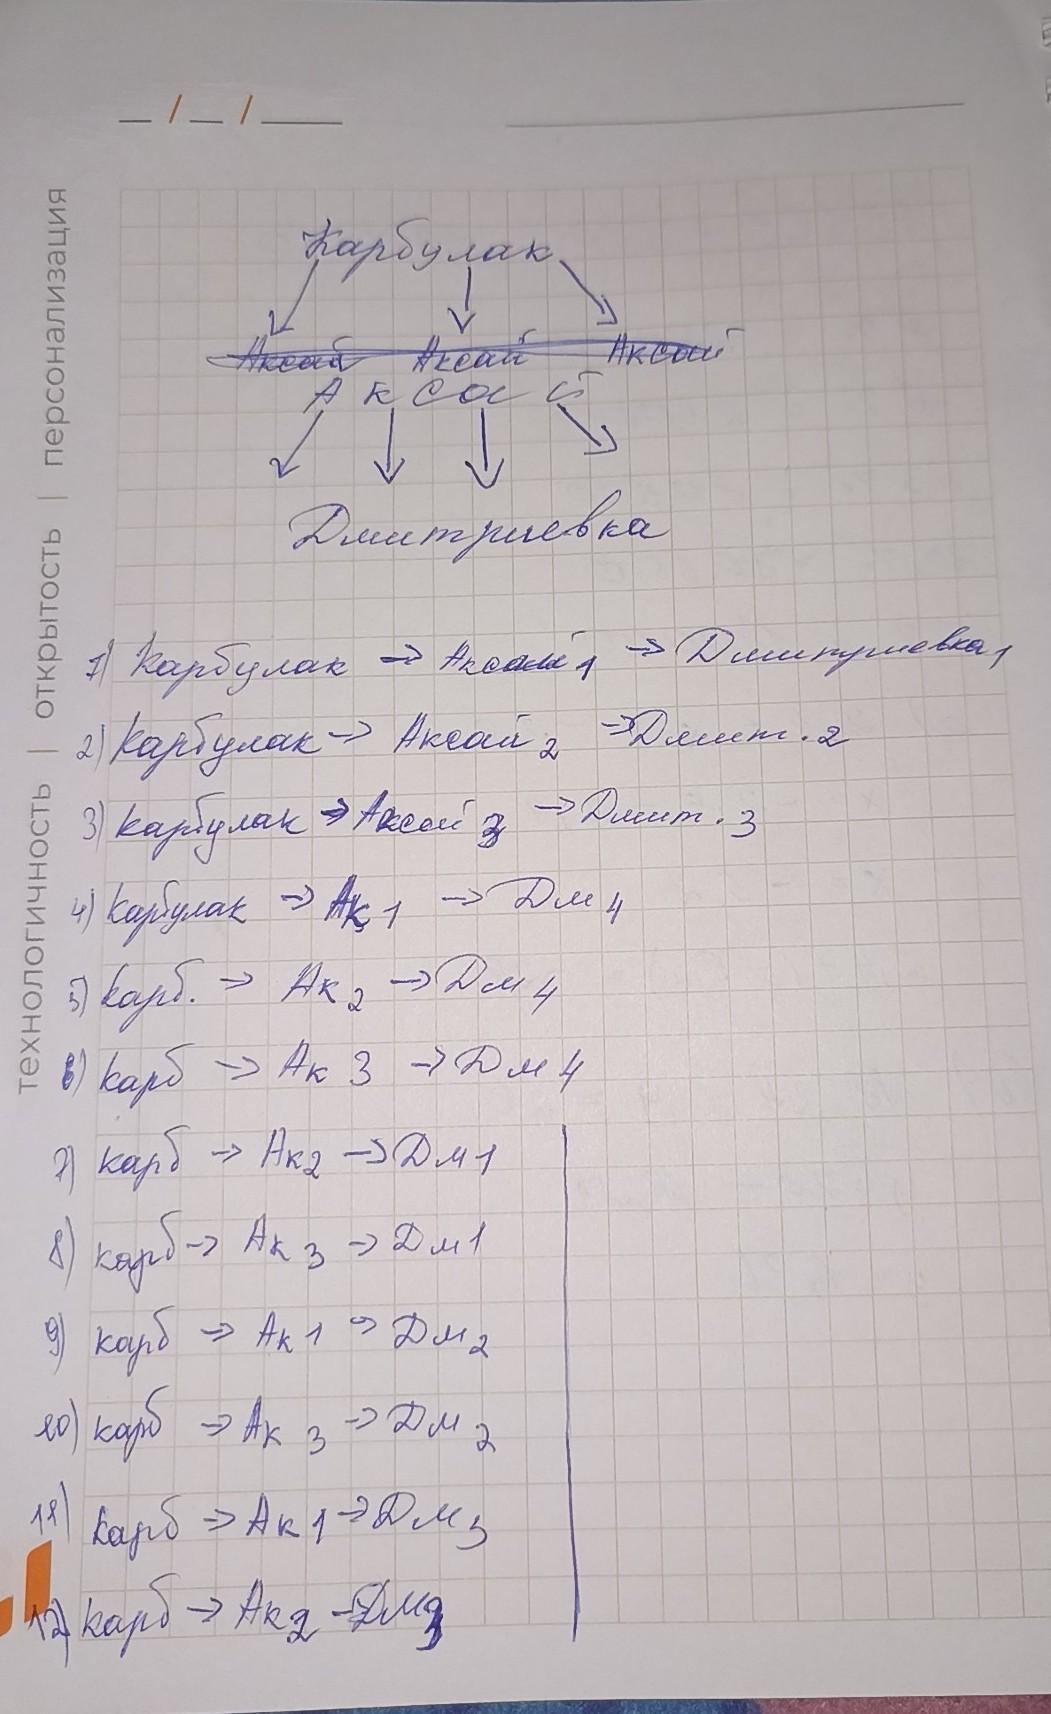 Карбулак
Аксай Аксай Аксай
Аксай
Дмитриевка
1) Карбулак → Аксай 1 → Дмитриевка 1
2) Карбулак → Аксай 2 → Дмит. 2
3) Карбулак → Аксай 3 → Дмит. 3
4) Карбулак → Ак 1 → Дм 4
5) Карб. → Ак 2 → Дм 4
6) Карб → Ак 3 → Дм 4
7) Карб → Ак 2 → Дм 1
8) Карб → Ак 3 → Дм 1
9) Карб → Ак 1 → Дм 2
10) Карб → Ак 3 → Дм 2
11) Карб → Ак 1 → Дм 3
12) Карб → Ак 2 → Дм 3
технологичность | открытость | персонализация